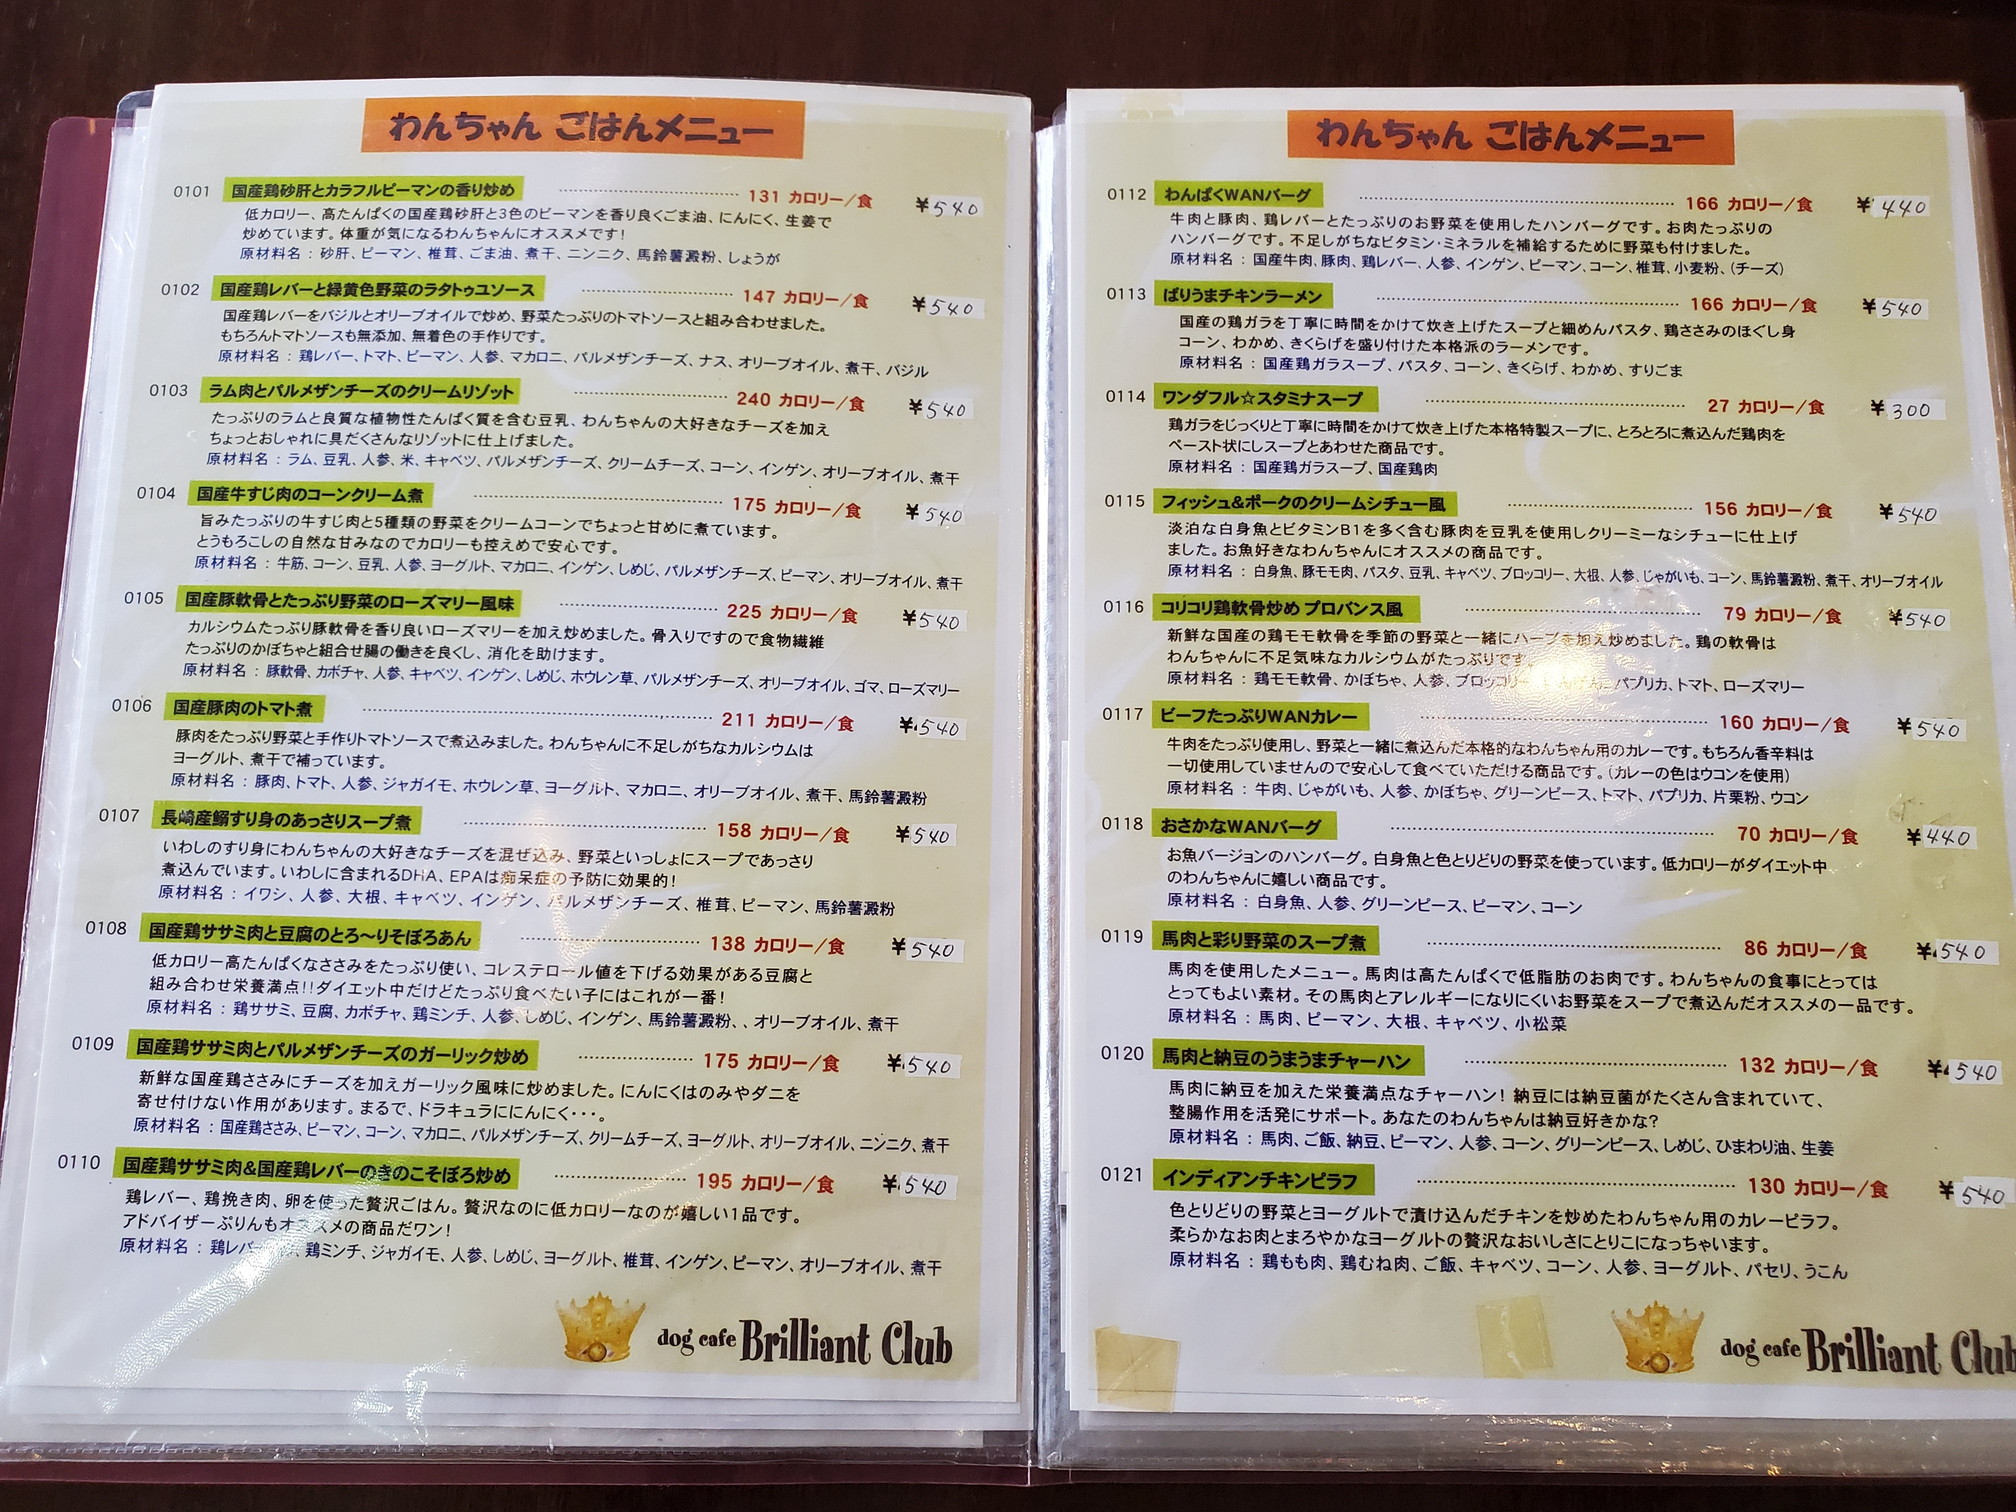 わんちゃん ごはんメニュー
0101 国産鶏砂肝とカラフルピーマンの香り炒め 131 カロリー/食 ¥540
低カロリー、高たんぱくの国産鶏砂肝と3色のピーマンを香り良くごま油、にんにく、生姜で
炒めています。体重が気になるわんちゃんにオススメです!
原材料名 : 砂肝、ピーマン、椎茸、ごま油、煮干、ニンニク、馬鈴薯澱粉、しょうが
0102 国産鶏レバーと緑黄色野菜のラタトゥユソース 147 カロリー/食 ¥540
国産鶏レバーをバジルとオリーブオイルで炒め、野菜たっぷりのトマトソースと組み合わせました。
もちろんトマトソースも無添加、無着色の手作りです。
原材料名 : 鶏レバー、トマト、ピーマン、人参、マカロニ、パルメザンチーズ、ナス、オリーブオイル、煮干、バジル
0103 ラム肉とパルメザンチーズのクリームリゾット 240 カロリー/食 ¥540
たっぷりのラムと良質な植物性たんぱく質を含む豆乳、わんちゃんの大好きなチーズを加え
ちょっとおしゃれに具だくさんなリゾットに仕上げました。
原材料名 : ラム、豆乳、人参、米、キャベツ、パルメザンチーズ、クリームチーズ、コーン、インゲン、オリーブオイル、煮干
0104 国産牛すじ肉のコーンクリーム煮 175 カロリー/食 ¥540
旨みたっぷりの牛すじ肉と5種類の野菜をクリームコーンでちょっと甘めに煮ています。
とうもろこしの自然な甘みなのでカロリーも控えめで安心です。
原材料名 : 牛筋、コーン、豆乳、人参、ヨーグルト、マカロニ、インゲン、しめじ、パルメザンチーズ、ピーマン、オリーブオイル、煮干
0105 国産豚軟骨とたっぷり野菜のローズマリー風味 225 カロリー/食 ¥540
カルシウムたっぷり豚軟骨を香り良いローズマリーを加え炒めました。骨入りですので食物繊維
たっぷりのかぼちゃと組合せ腸の働きを良くし、消化を助けます。
原材料名 : 豚軟骨、カボチャ、人参、キャベツ、インゲン、しめじ、ホウレン草、パルメザンチーズ、オリーブオイル、ゴマ、ローズマリー
0106 国産豚肉のトマト煮 211 カロリー/食 ¥540
豚肉をたっぷり野菜と手作りトマトソースで煮込みました。わんちゃんに不足しがちなカルシウムは
ヨーグルト、煮干で補っています。
原材料名 : 豚肉、トマト、人参、ジャガイモ、ホウレン草、ヨーグルト、マカロニ、オリーブオイル、煮干、馬鈴薯澱粉
0107 長崎産鰯すり身のあっさりスープ煮 158 カロリー/食 ¥540
いわしのすり身にわんちゃんの大好きなチーズを混ぜ込み、野菜といっしょにスープであっさり
煮込んでいます。いわしに含まれるDHA、EPAは痴呆症の予防に効果的!
原材料名 : イワシ、人参、大根、キャベツ、インゲン、パルメザンチーズ、椎茸、ピーマン、馬鈴薯澱粉
0108 国産鶏ササミ肉と豆腐のとろ〜りそぼろあん 138 カロリー/食 ¥540
低カロリー高たんぱくなささみをたっぷり使い、コレステロール値を下げる効果がある豆腐と
組み合わせ栄養満点!!ダイエット中だけどたっぷり食べたい子にはこれが一番!
原材料名 : 鶏ササミ、豆腐、カボチャ、鶏ミンチ、人参、しめじ、インゲン、馬鈴薯澱粉、、オリーブオイル、煮干
0109 国産鶏ササミ肉とパルメザンチーズのガーリック炒め 175 カロリー/食 ¥540
新鮮な国産鶏ささみにチーズを加えガーリック風味に炒めました。にんにくはのみやダニを
寄せ付けない作用があります。まるで、ドラキュラににんにく・・・。
原材料名 : 国産鶏ささみ、ピーマン、コーン、マカロニ、パルメザンチーズ、クリームチーズ、ヨーグルト、オリーブオイル、ニンニク、煮干
0110 国産鶏ササミ肉&国産鶏レバーのきのこそぼろ炒め 195 カロリー/食 ¥540
鶏レバー、鶏挽き肉、卵を使った贅沢ごはん。贅沢なのに低カロリーなのが嬉しい1品です。
アドバイザーぷりんもオススメの商品だワン!
原材料名 : 鶏レバ 鶏ミンチ、ジャガイモ、人参、しめじ、ヨーグルト、椎茸、インゲン、ピーマン、オリーブオイル、煮干
dog cafe Brilliant Club
わんちゃん ごはんメニュー
0112 わんぱくWANバーグ 166 カロリー/食 ¥440
牛肉と豚肉、鶏レバーとたっぷりのお野菜を使用したハンバーグです。お肉たっぷりの
ハンバーグです。不足しがちなビタミン・ミネラルを補給するために野菜も付けました。
原材料名 : 国産牛肉、豚肉、鶏レバー、人参、インゲン、ピーマン、コーン、椎茸、小麦粉、(チーズ)
0113 ばりうまチキンラーメン 166 カロリー/食 ¥540
国産の鶏ガラを丁寧に時間をかけて炊き上げたスープと細めんパスタ、鶏ささみのほぐし身
コーン、わかめ、きくらげを盛り付けた本格派のラーメンです。
原材料名 : 国産鶏ガラスープ、パスタ、コーン、きくらげ、わかめ、すりごま
0114 ワンダフル☆スタミナスープ 27 カロリー/食 ¥300
鶏ガラをじっくりと丁寧に時間をかけて炊き上げた本格特製スープに、とろとろに煮込んだ鶏肉を
ペースト状にしスープとあわせた商品です。
原材料名 : 国産鶏ガラスープ、国産鶏肉
0115 フィッシュ&ポークのクリームシチュー風 156 カロリー/食 ¥540
淡泊な白身魚とビタミンB1を多く含む豚肉を豆乳を使用しクリーミーなシチューに仕上げ
ました。お魚好きなわんちゃんにオススメの商品です。
原材料名 : 白身魚、豚モモ肉、パスタ、豆乳、キャベツ、ブロッコリー、大根、人参、じゃがいも、コーン、馬鈴薯澱粉、煮干、オリーブオイル
0116 コリコリ鶏軟骨炒め プロバンス風 79 カロリー/食 ¥540
新鮮な国産の鶏モモ軟骨を季節の野菜と一緒にハーブを加え炒めました。鶏の軟骨は
わんちゃんに不足気味なカルシウムがたっぷりです。
原材料名 : 鶏モモ軟骨、かぼちゃ、人参、ブロッコリー パプリカ、トマト、ローズマリー
0117 ビーフたっぷりWANカレー 160 カロリー/食 ¥540
牛肉をたっぷり使用し、野菜と一緒に煮込んだ本格的なわんちゃん用のカレーです。もちろん香辛料は
一切使用していませんので安心して食べていただける商品です。(カレーの色はウコンを使用)
原材料名 : 牛肉、じゃがいも、人参、かぼちゃ、グリーンピース、トマト、パプリカ、片栗粉、ウコン
0118 おさかなWANバーグ 70 カロリー/食 ¥440
お魚バージョンのハンバーグ。白身魚と色とりどりの野菜を使っています。低カロリーがダイエット中
のわんちゃんに嬉しい商品です。
原材料名 : 白身魚、人参、グリーンピース、ピーマン、コーン
0119 馬肉と彩り野菜のスープ煮 86 カロリー/食 ¥540
馬肉を使用したメニュー。馬肉は高たんぱくで低脂肪のお肉です。わんちゃんの食事にとっては
とってもよい素材。その馬肉とアレルギーになりにくいお野菜をスープで煮込んだオススメの一品です。
原材料名 : 馬肉、ピーマン、大根、キャベツ、小松菜
0120 馬肉と納豆のうまうまチャーハン 132 カロリー/食 ¥540
馬肉に納豆を加えた栄養満点なチャーハン! 納豆には納豆菌がたくさん含まれていて、
整腸作用を活発にサポート。あなたのわんちゃんは納豆好きかな?
原材料名 : 馬肉、ご飯、納豆、ピーマン、人参、コーン、グリーンピース、しめじ、ひまわり油、生姜
0121 インディアンチキンピラフ 130 カロリー/食 ¥540
色とりどりの野菜とヨーグルトで漬け込んだチキンを炒めたわんちゃん用のカレーピラフ。
柔らかなお肉とまろやかなヨーグルトの贅沢なおいしさにとりこになっちゃいます。
原材料名 : 鶏もも肉、鶏むね肉、ご飯、キャベツ、コーン、人参、ヨーグルト、パセリ、うこん
dog cafe Brilliant Club